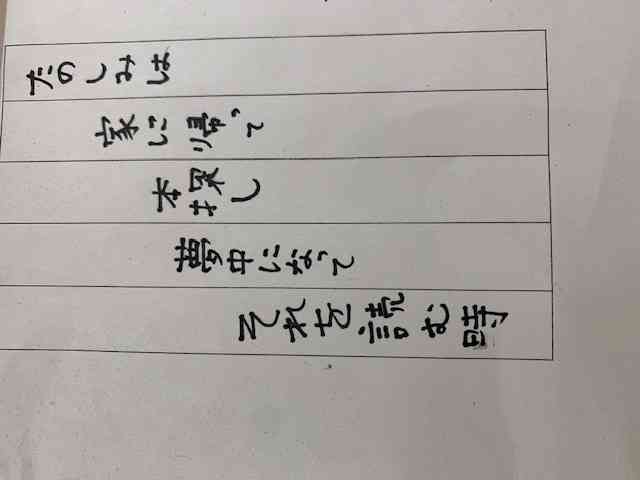 たのしみは
家に帰って
本探し
夢中になって
それを読む時